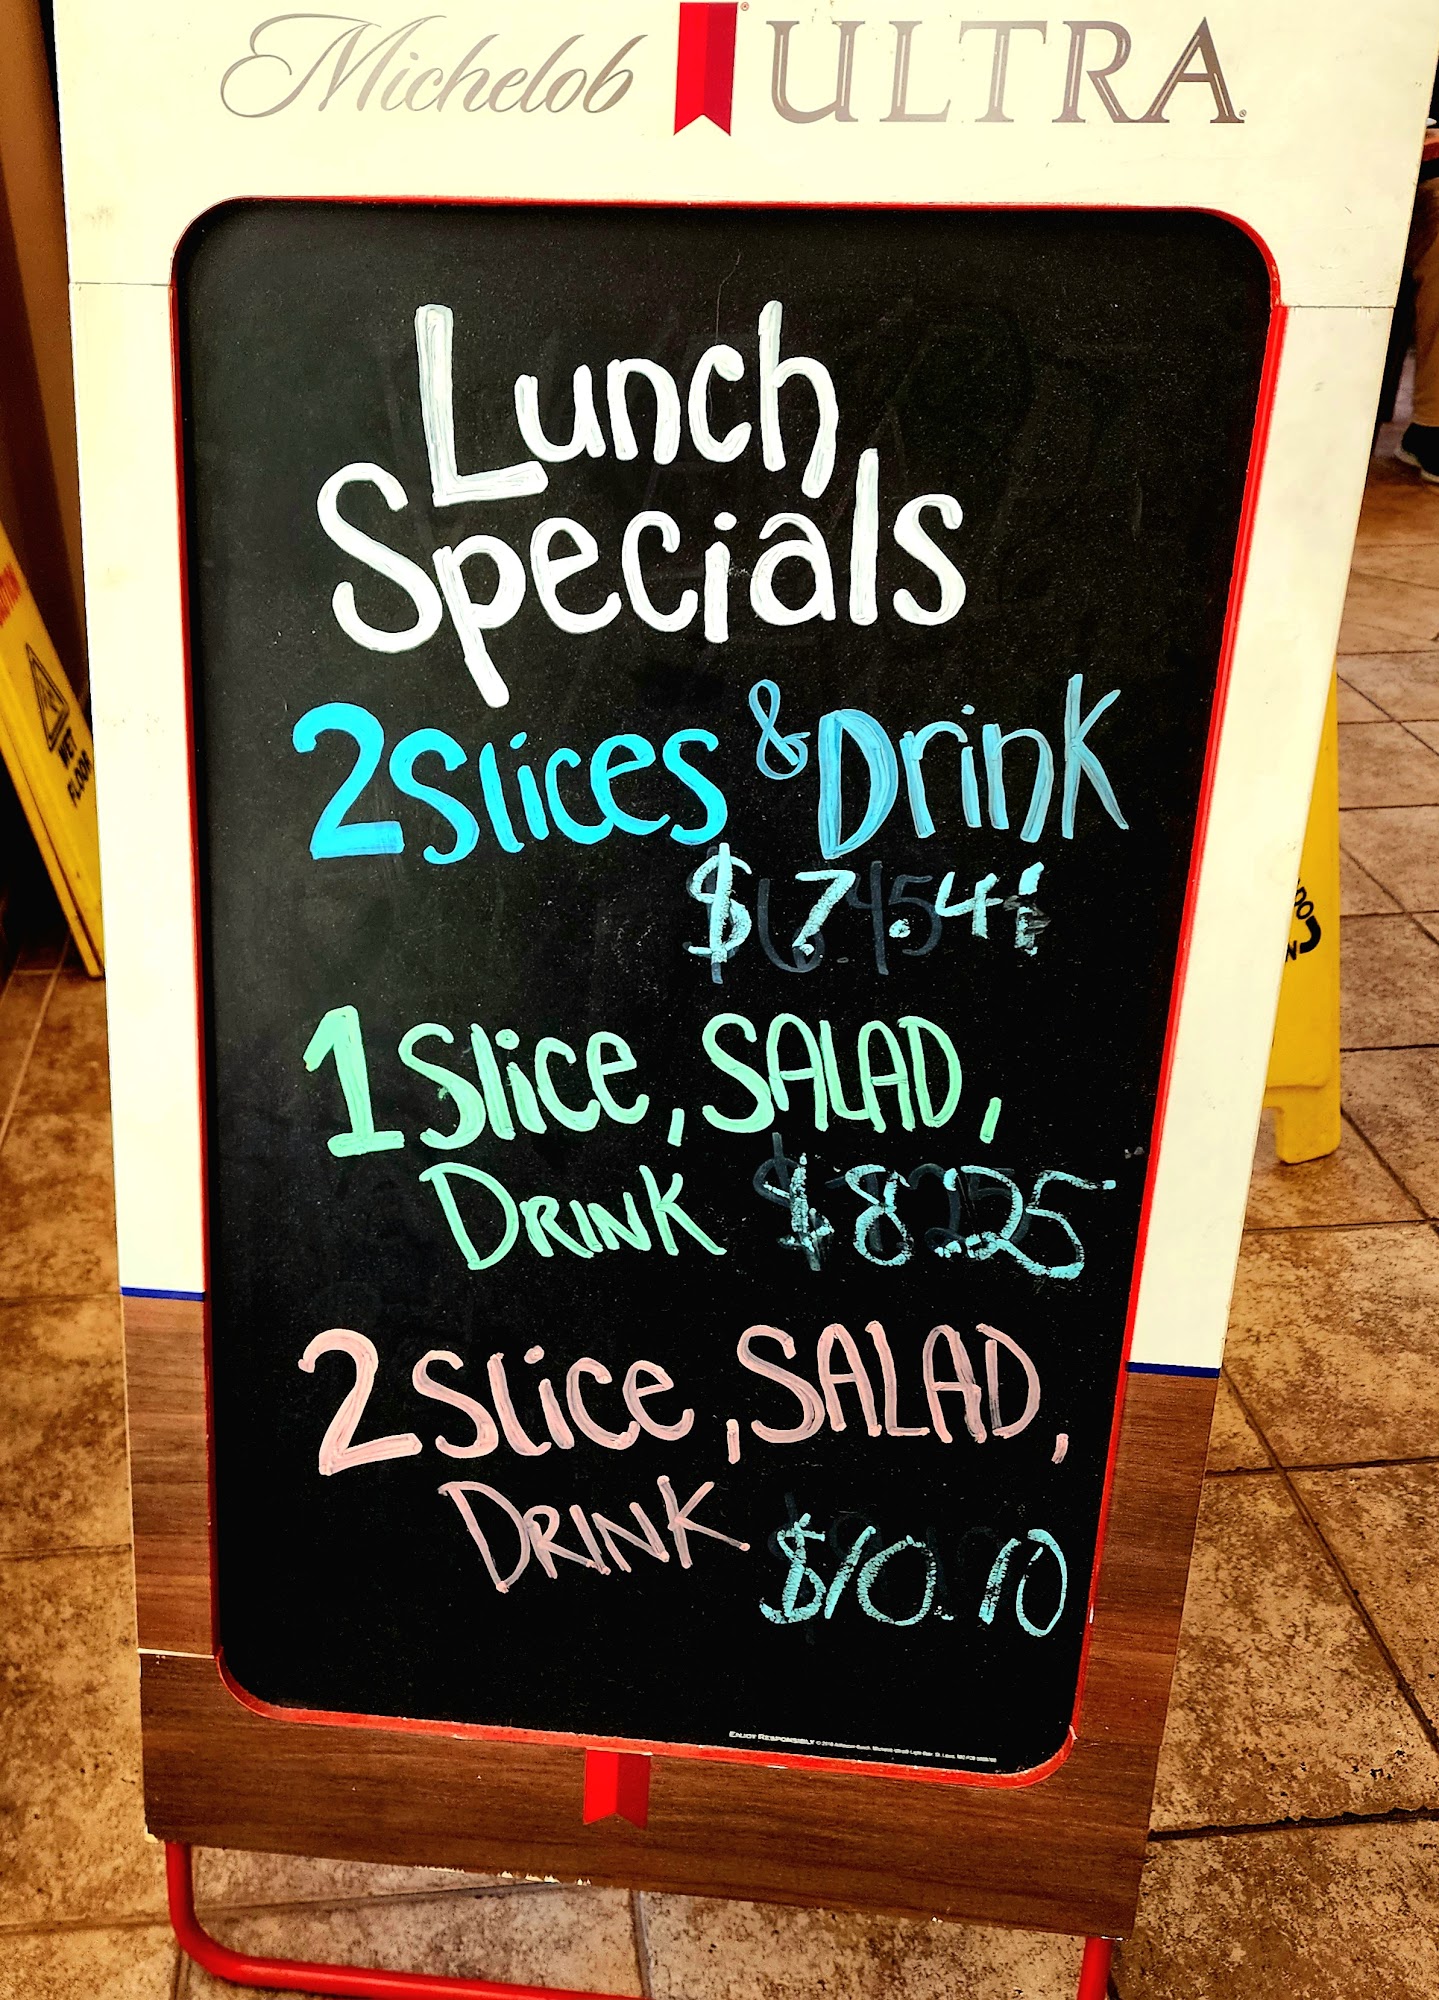 Michelob ULTRA
Lunch
Specials
2 Slices & Drink
1 Slice, SALAD,
DRINK $8.25
2 Slice, SALAD,
DRINK $10.10
ENJOY RESPONSIBLY
WET
FLOOR